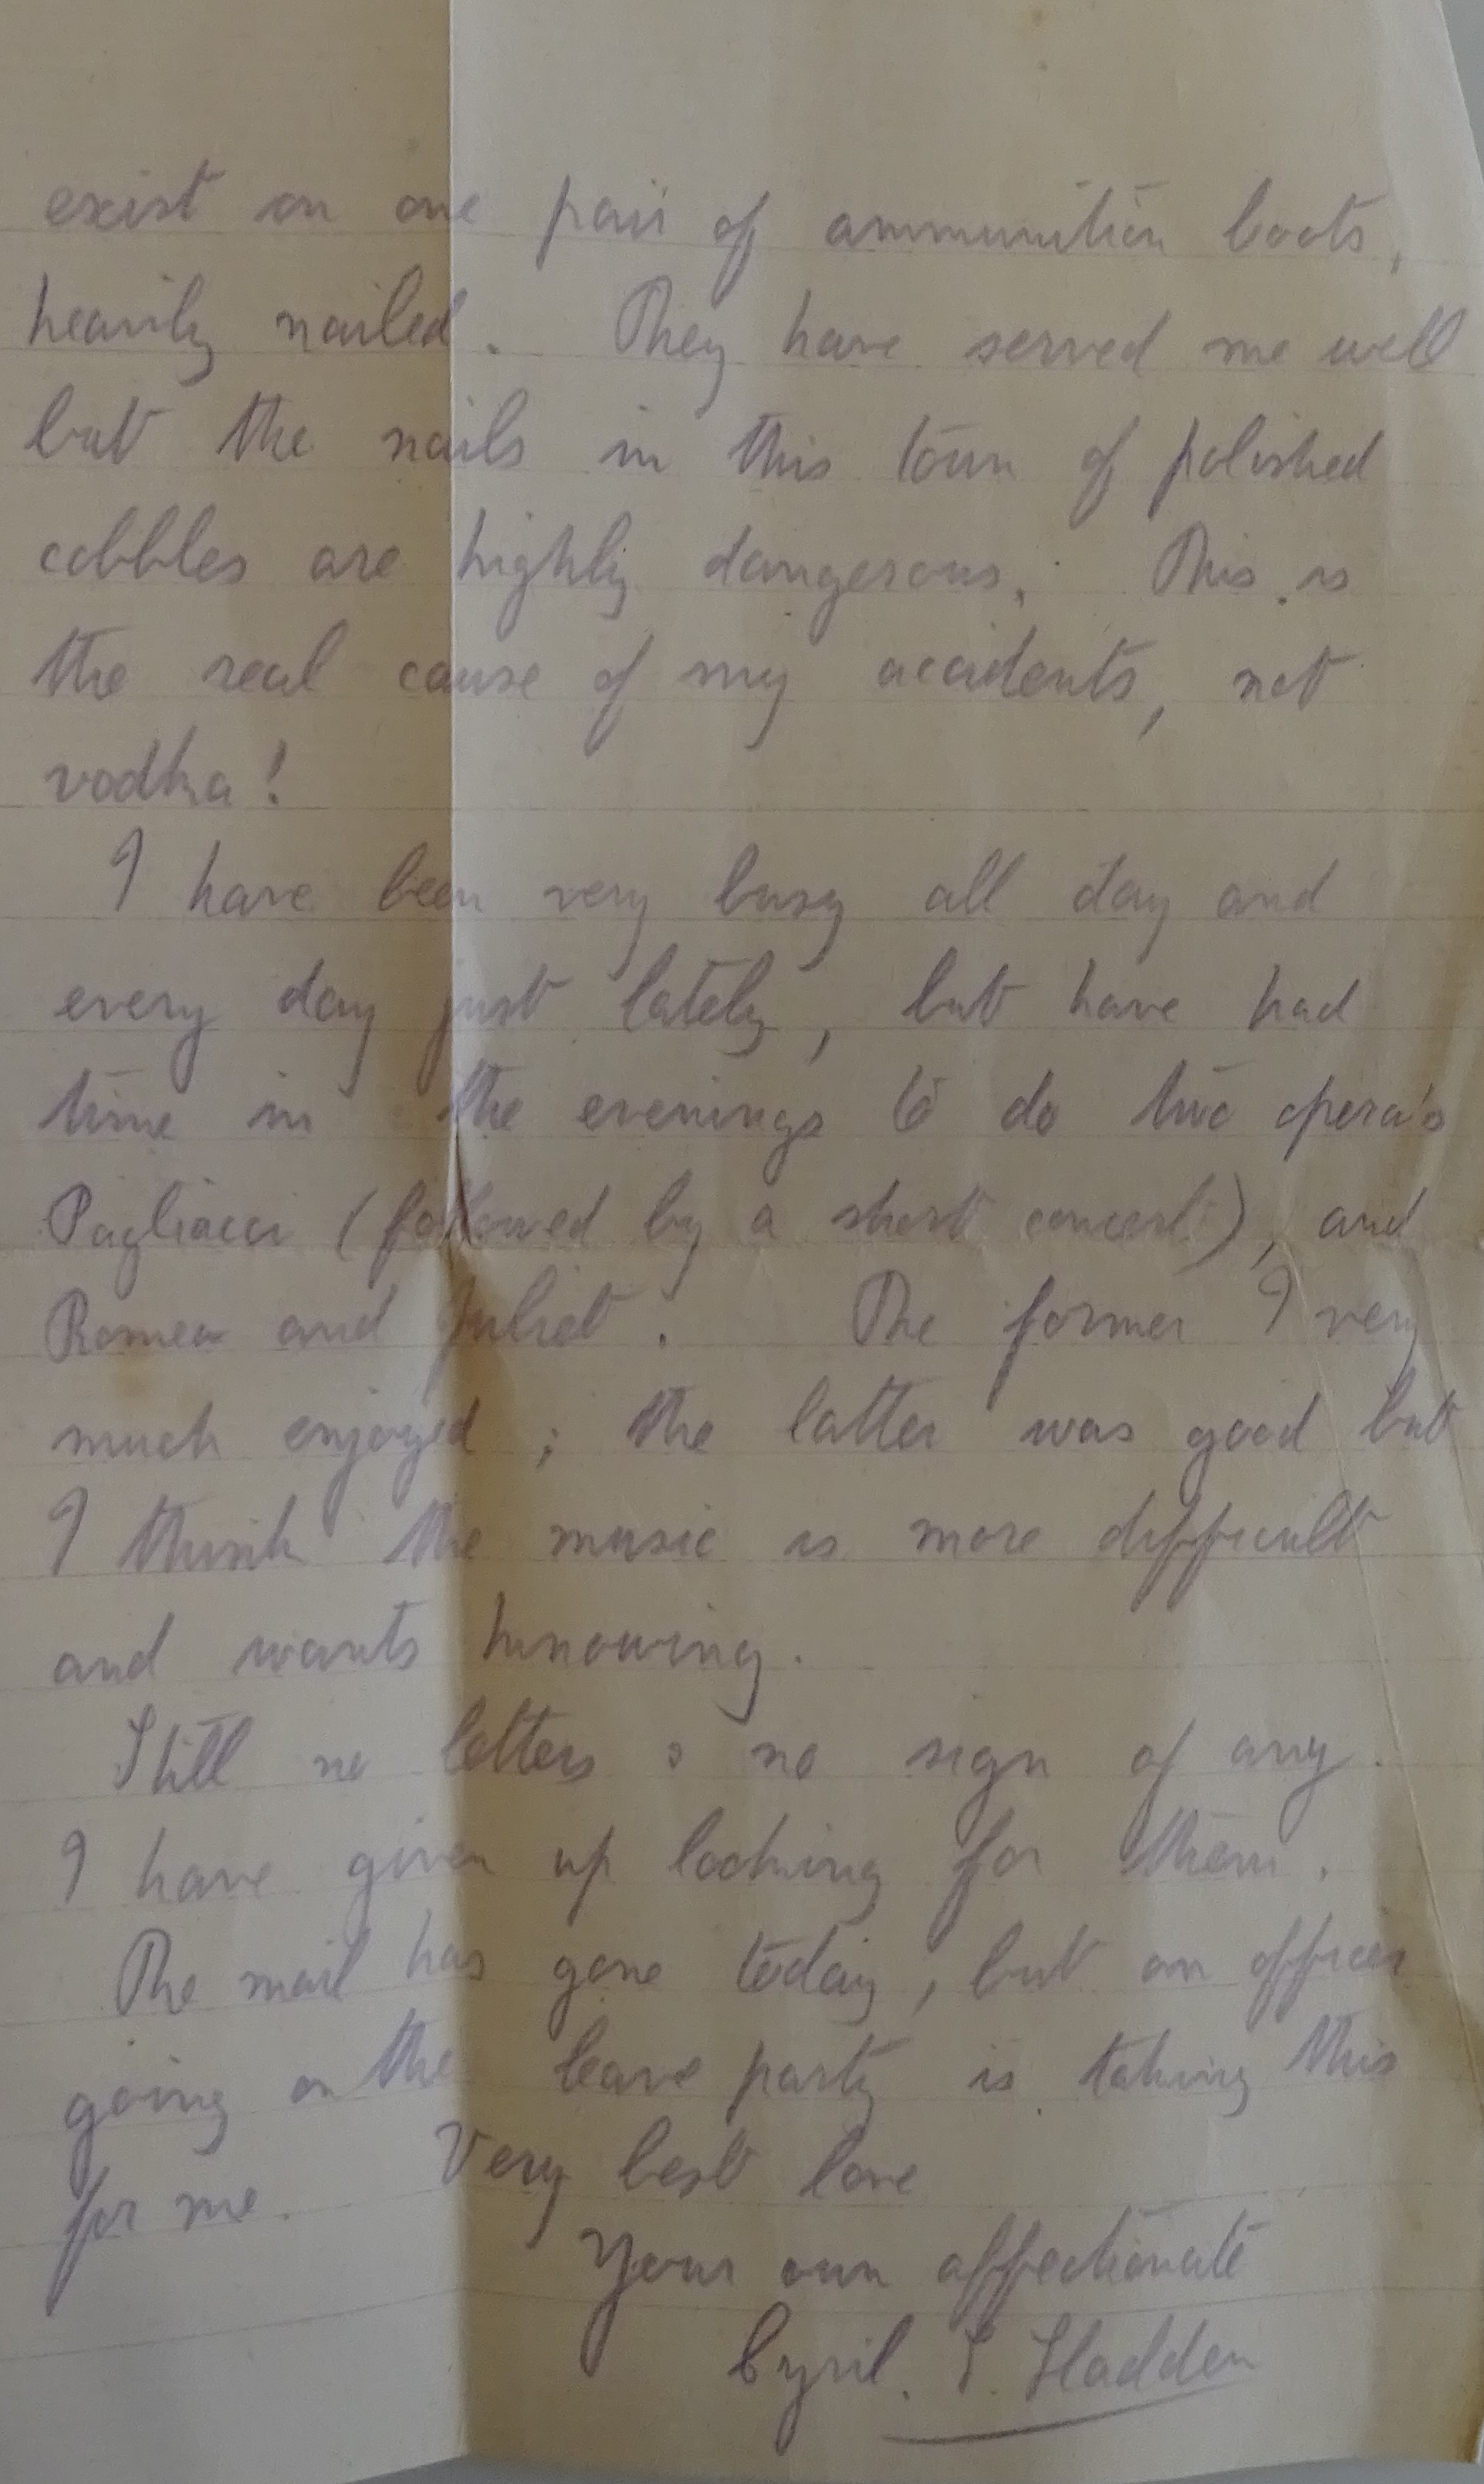 exist on one pair of ammunition boots,
heavily nailed. They have served me well
but the nails in this town of polished
cobbles are highly dangerous. This is
the real cause of my accidents, not
vodka!
I have been very busy all day and
every day just lately, but have had
time in the evenings to do two opera's
Pagliacci (followed by a short concert), and
Romeo and Juliet. The former I very
much enjoyed; the latter was good but
I think the music is more difficult
and wants knowing.
Still no letters & no sign of any.
I have given up looking for them.
The mail has gone today, but an officer
going on the leave party is taking this
for me. Very best love
Your own affectionate
Cyril. S. Sladden